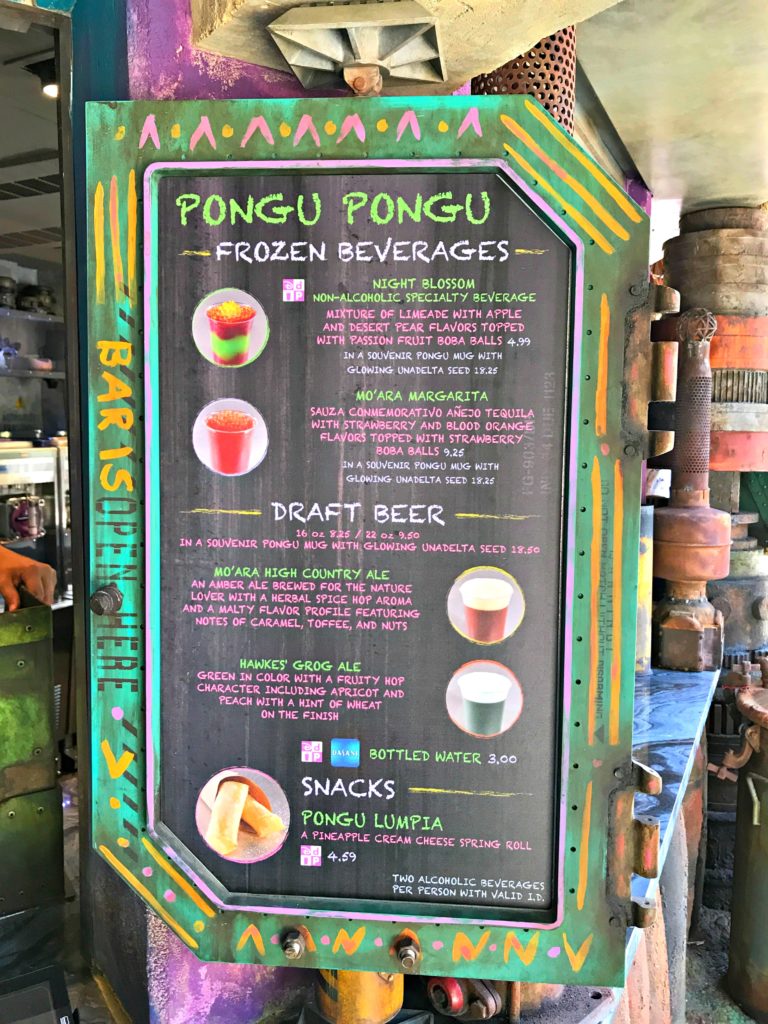 PONGU PONGU
FROZEN BEVERAGES
NIGHT BLOSSOM
NON-ALCOHOLIC SPECIALTY BEVERAGE
MIXTURE OF LIMEADE WITH APPLE
AND DESERT PEAR FLAVORS TOPPED
WITH PASSION FRUIT BOBA BALLS 4.99
IN A SOUVENIR PONGU MUG WITH
GLOWING UNADELTA SEED 18.25
MO'ARA MARGARITA
SAUZA CONMEMORATIVO AÑEJO TEQUILA
WITH STRAWBERRY AND BLOOD ORANGE
FLAVORS TOPPED WITH STRAWBERRY
BOBA BALLS 9.25
IN A SOUVENIR PONGU MUG WITH
GLOWING UNADELTA SEED 18.25
DRAFT BEER
16 oz 8.25 / 22 oz 9.50
IN A SOUVENIR PONGU MUG WITH GLOWING UNADELTA SEED 18.50
MO'ARA HIGH COUNTRY ALE
AN AMBER ALE BREWED FOR THE NATURE
LOVER WITH A HERBAL SPICE HOP AROMA
AND A MALTY FLAVOR PROFILE FEATURING
NOTES OF CARAMEL, TOFFEE, AND NUTS
HAWKES' GROG ALE
GREEN IN COLOR WITH A FRUITY HOP
CHARACTER INCLUDING APRICOT AND
PEACH WITH A HINT OF WHEAT
ON THE FINISH
BOTTLED WATER 3.00
SNACKS
PONGU LUMPIA
A PINEAPPLE CREAM CHEESE SPRING ROLL
4.59
TWO ALCOHOLIC BEVERAGES
PER PERSON WITH VALID I.D.
BAR IS
OPEN HERE